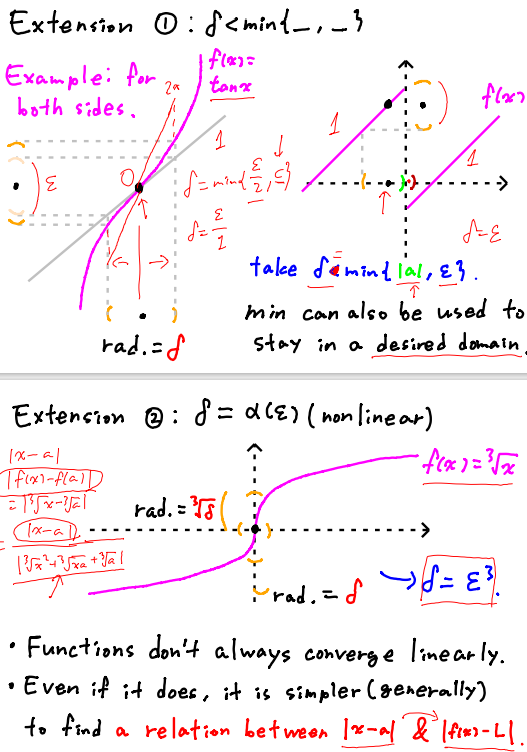 Extension ① : δ<min{_, _}
Example: for
both sides.
f(x)=
tanx
2a
1
0
ε
δ=min{ε/2, ε}
δ=ε/1
rad.=δ
f(x)
1
1
δ=ε
take δ≤min{|a|, ε}.
min can also be used to
stay in a desired domain.
Extension ② : δ = α(ε) (nonlinear)
|x-a|
|f(x)-f(a)|
=|∛x-∛a|
= |x-a| / |∛x²+∛xa+∛a|
rad.=∛δ
f(x)=∛x
rad.=δ
→ δ=ε³.
• Functions don't always converge linearly.
• Even if it does, it is simpler (generally)
to find a relation between |x-a| & |f(x)-L|